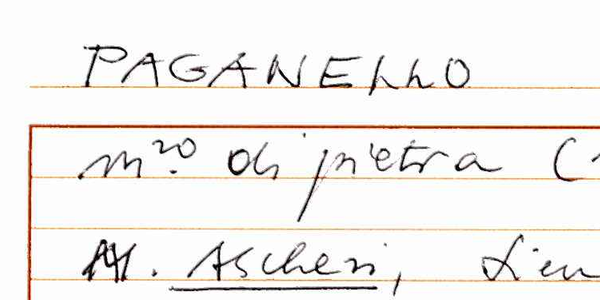 PAGANELLO
m.ro di pietra (
M. Ascheri, Sien